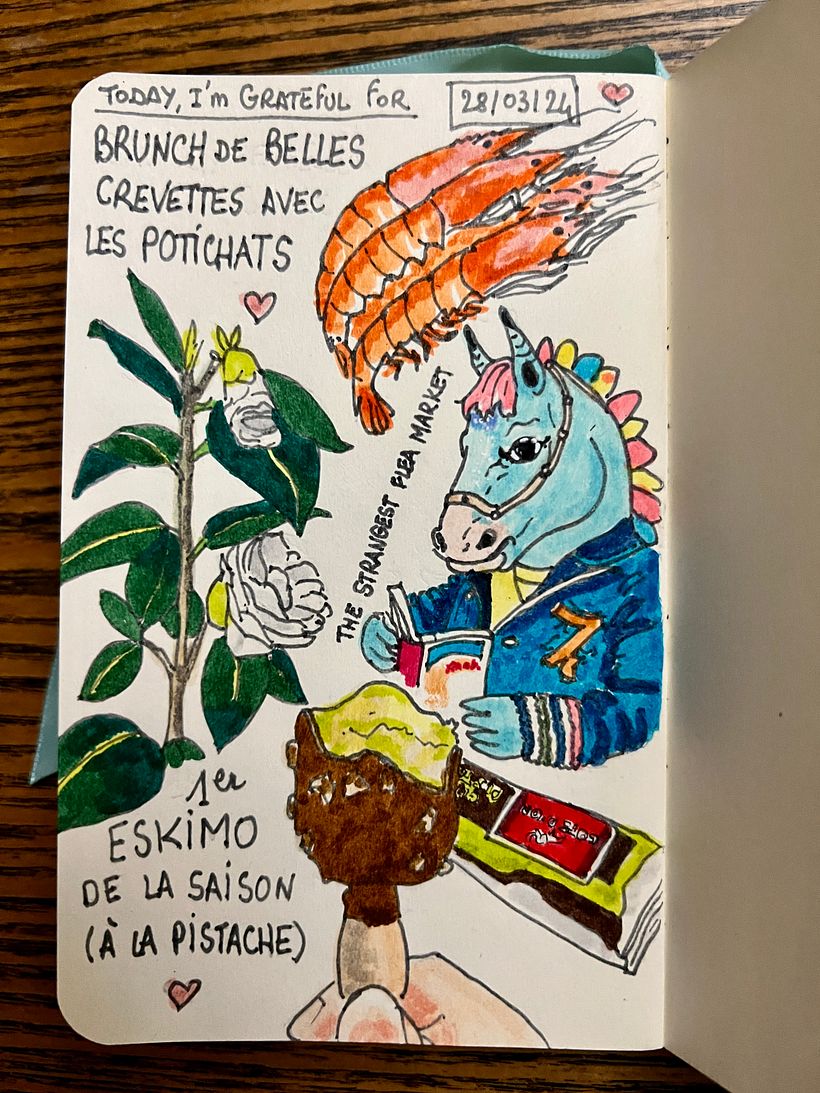 TODAY, I'm GRATEFUL FOR
28/03/24
BRUNCH DE BELLES
CREVETTES AVEC
LES POTICHATS
THE STRANGEST FLEA MARKET
7
1er
ESKIMO
DE LA SAISON
(À LA PISTACHE)